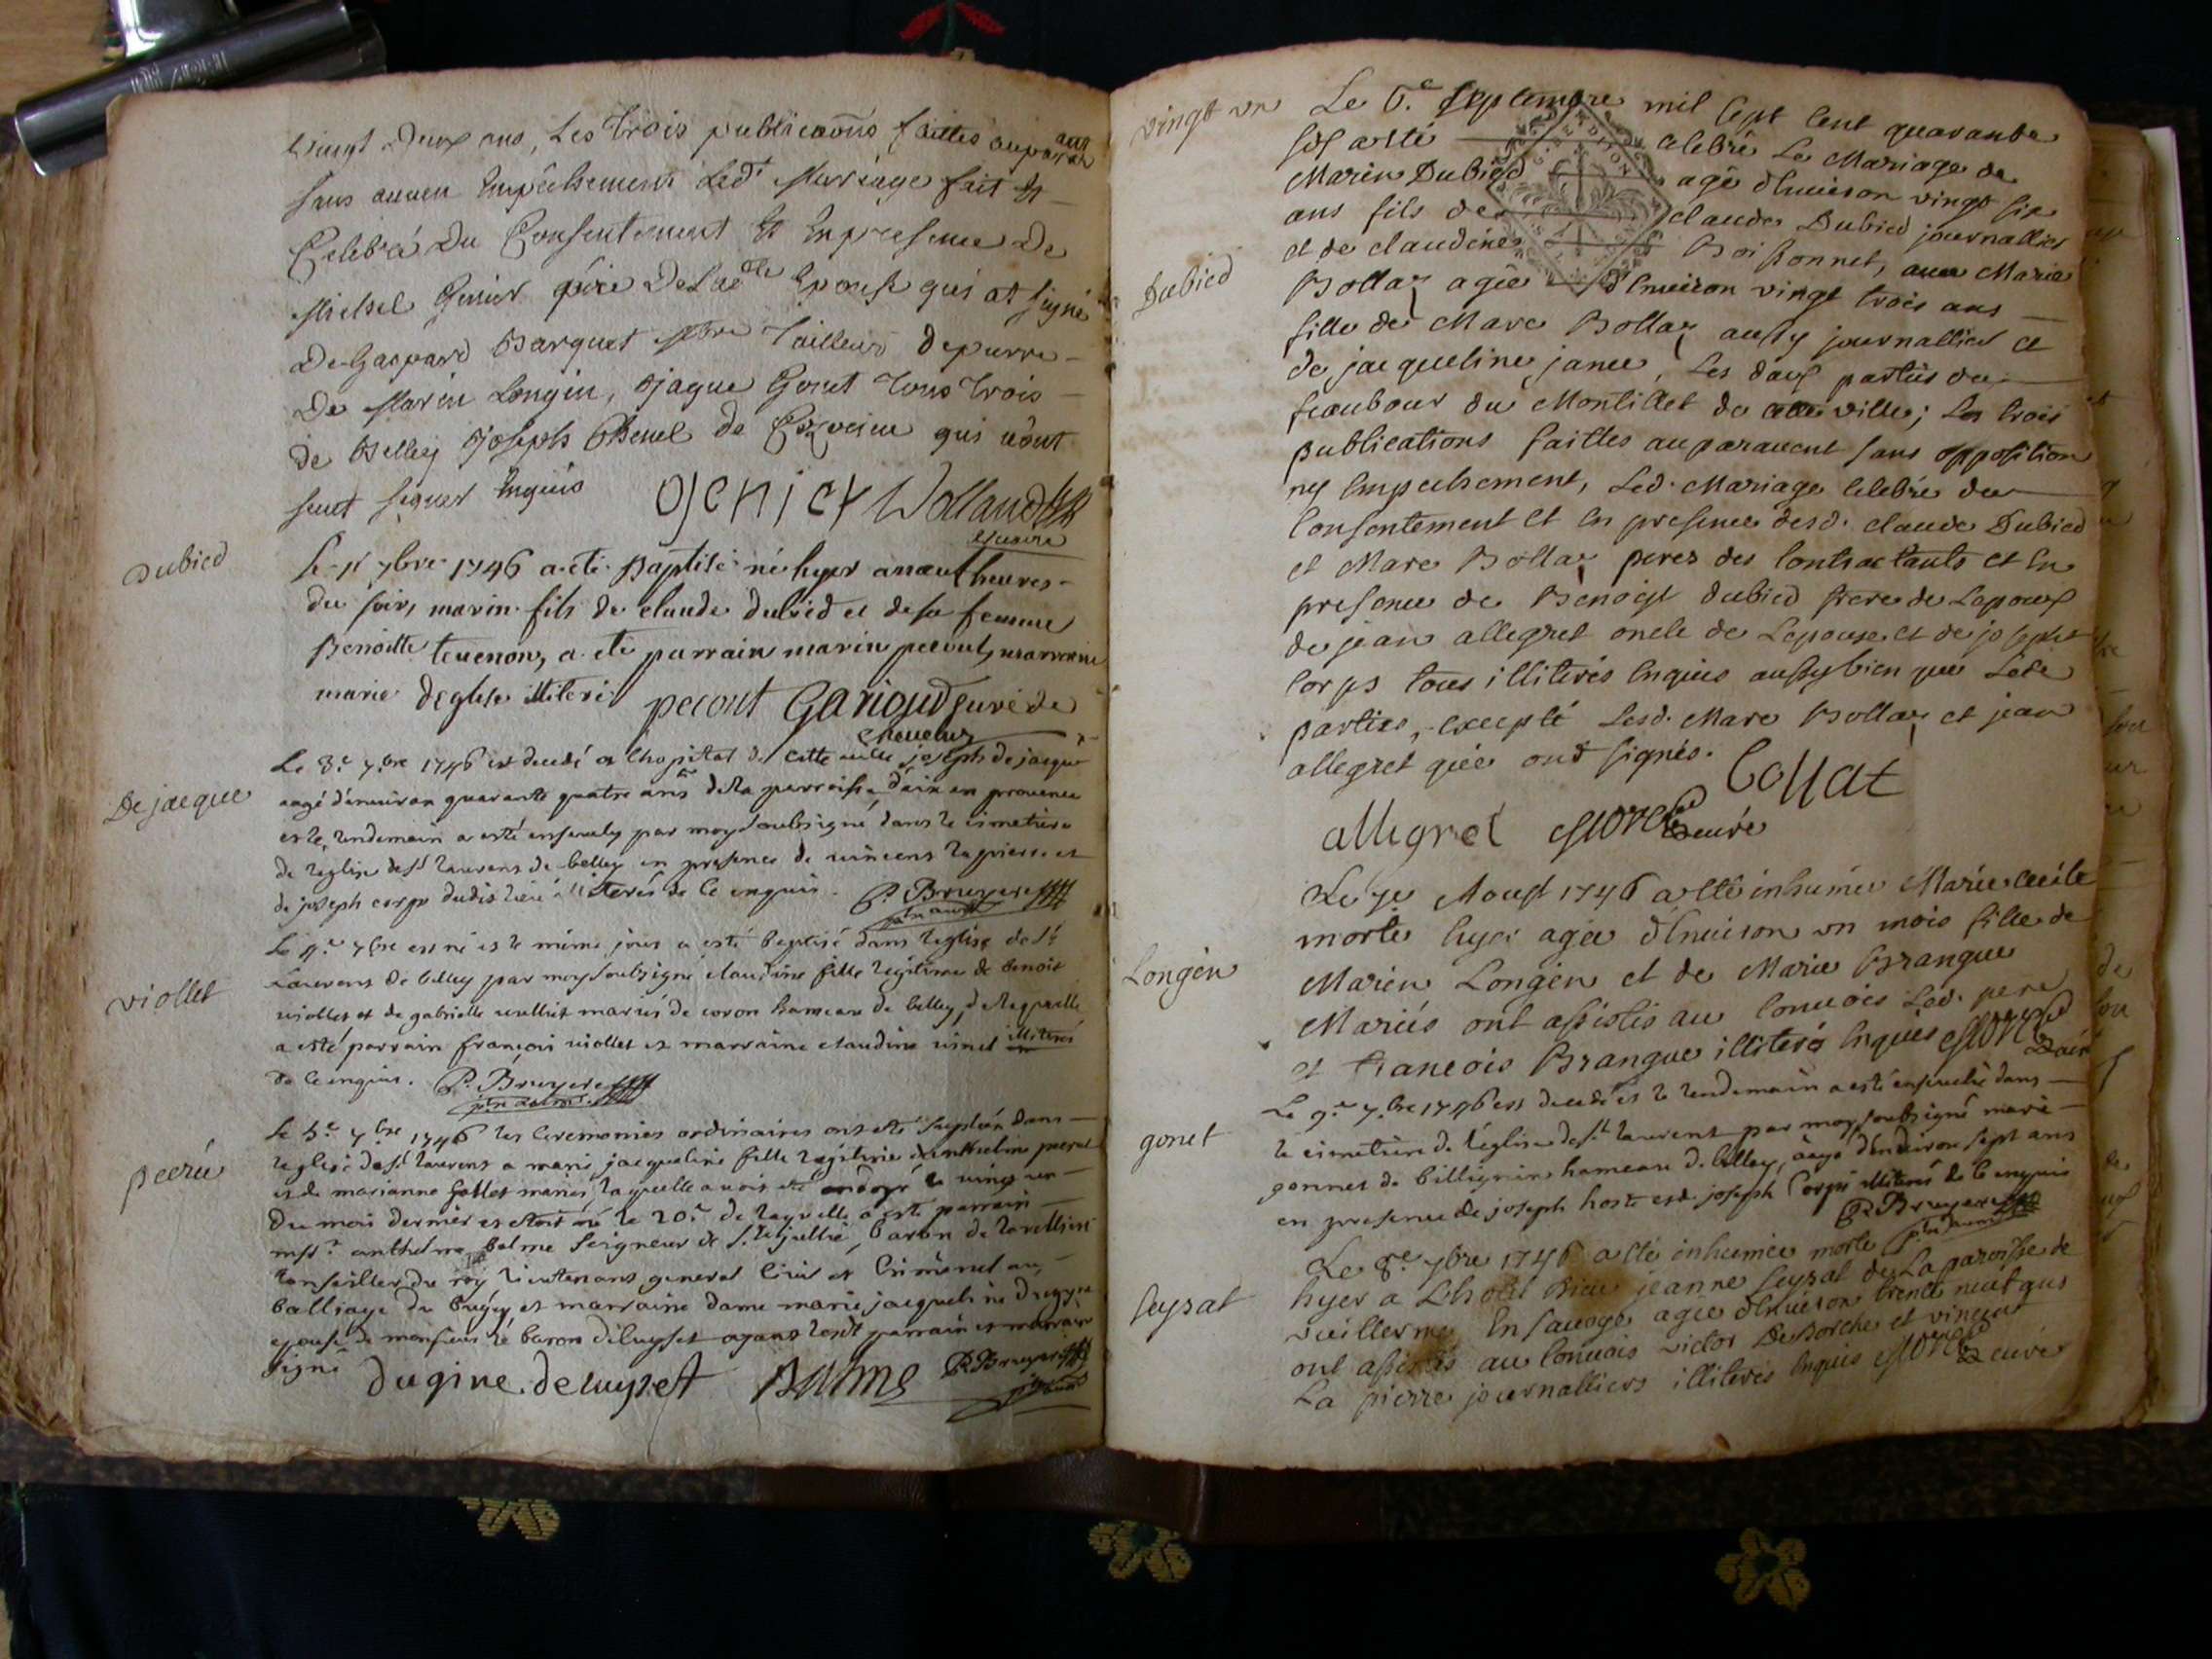 vingt Deux ans, Les trois publications faittes auparavant
sans aucun Empechement Ledt Mariage fait Et
Celebré Du Consentement Et En presence De
Michel Genier père De Ladte Epouse qui at signé
De Gaspard Barquet Mre Tailleur depierre
De Marin Longin, Jaque Gonet Tous Trois
de Belley Joseph de qui n'ont
sceut signer Enquis Genier Wollaud
vicaire
Dubied
Le 7bre 1746 a eté Baptisé né hyer a neuf heures
du soir, marin fils de claude dubied et de sa femme
Benoitte tevenon, a eté parrain marin pecout, marraine
marie illiteré pecout Garioud curé de
cheveluz
De jacque
Le 3e 7bre 1746 est decedé a lhopital de cette ville joseph de jacque
aagé d'environ quarante quatre ans de la parroisse d'aix en provence
et le lendemain a esté ensevely par moy soubsigné dans le cimetiere
de leglise de st laurens de belley en presence de vincens lapierre et
de joseph corps dudit lieu illiterés de ce enquis. P. Bruyere
viollet
Le 4e 7bre est né et le même jour a esté baptisé dans leglise de st
Laurens de belley par moy soubsigné claudine fille legitime de benoit
viollet et de gabrielle vuilliet mariés de coron hameau de belley, de laquelle
a esté parrain françois viollet et marraine claudine vinet illiterés
de ce enquis. P. Bruyere
pecru
Le 5e 7bre 1746 les ceremonies ordinaires ont esté suplées dans
leglise de st laurens a marie jacqueline fille legitime
et de marianne Gallet mariés, laquelle avoit été ondoyé le vingt un
du mois dernier et etoit né le 20e de laquelle a esté parrain
messr anthelme balme seigneur de st baron de
conseiller du roy lieutenant general civil et criminel au
balliage du bugey et marraine dame marie jacqueline
epouse de monsieur le baron ayant lesdt parrain et marraine
signé dugine. deluyset Balme P. Bruyere
vingt un
Dubied
Le 6.e septembre mil sept cent quarante
six a esté celebré Le Mariage de
Marin Dubied agé d'Environ vingt six
ans fils de claude Dubied journallier
et de claudine Boissonnet, avec Marie
Bollaz agée d'Environ vingt trois ans
fille de Marc Bollaz aussy journallier et
de jacqueline janée, Les deux parties du
feaubour du Montillet de cette ville; Les trois
publications faittes auparavent sans opposition
ny Empechement, Led. Mariage celebré du
Consentement et En presence desd. claude Dubied
et Marc Bollaz peres des Contractants et En
presence de Benoist dubied frere de Lepoux
de jean allegret oncle de Lepouse et de joseph
Corps tous illiterés Enquis aussy bien que Lede
parties, excepté Lesd. Marc Bollaz et jean
allegret qui ont signés. Collat
allegret Morel curé
Longin
Le 7e Aoust 1746 a esté inhumée Marie cecile
morte hyer agée d'Environ un mois fille de
Marin Longin et de Marie Brangue
Mariés ont assistés au Convois Led. pere
et francois Brangue illiterés Enquis Morel
curé
gonet
Le 9.e 7.bre 1746 est decedé et le lendemain a esté ensevelie dans
le cimetiere de l'eglise de st laurent par moy soubsigné marie
gonnet de billignin hameau de belley, aage d'environ sept ans
en presence de joseph hoste et de joseph Corps illiterés de ce enquis
P. Bruyere
seysat
Le 8.e 7bre 1746 a esté inhumée morte
hyer a Lhotel Dieu jeanne seysat de La paroisse de
vuillerme En savoye agée d'Environ trente neuf ans
ont assistés au Convois victor et vincent
La pierre journalliers illiterés Enquis Morel curé